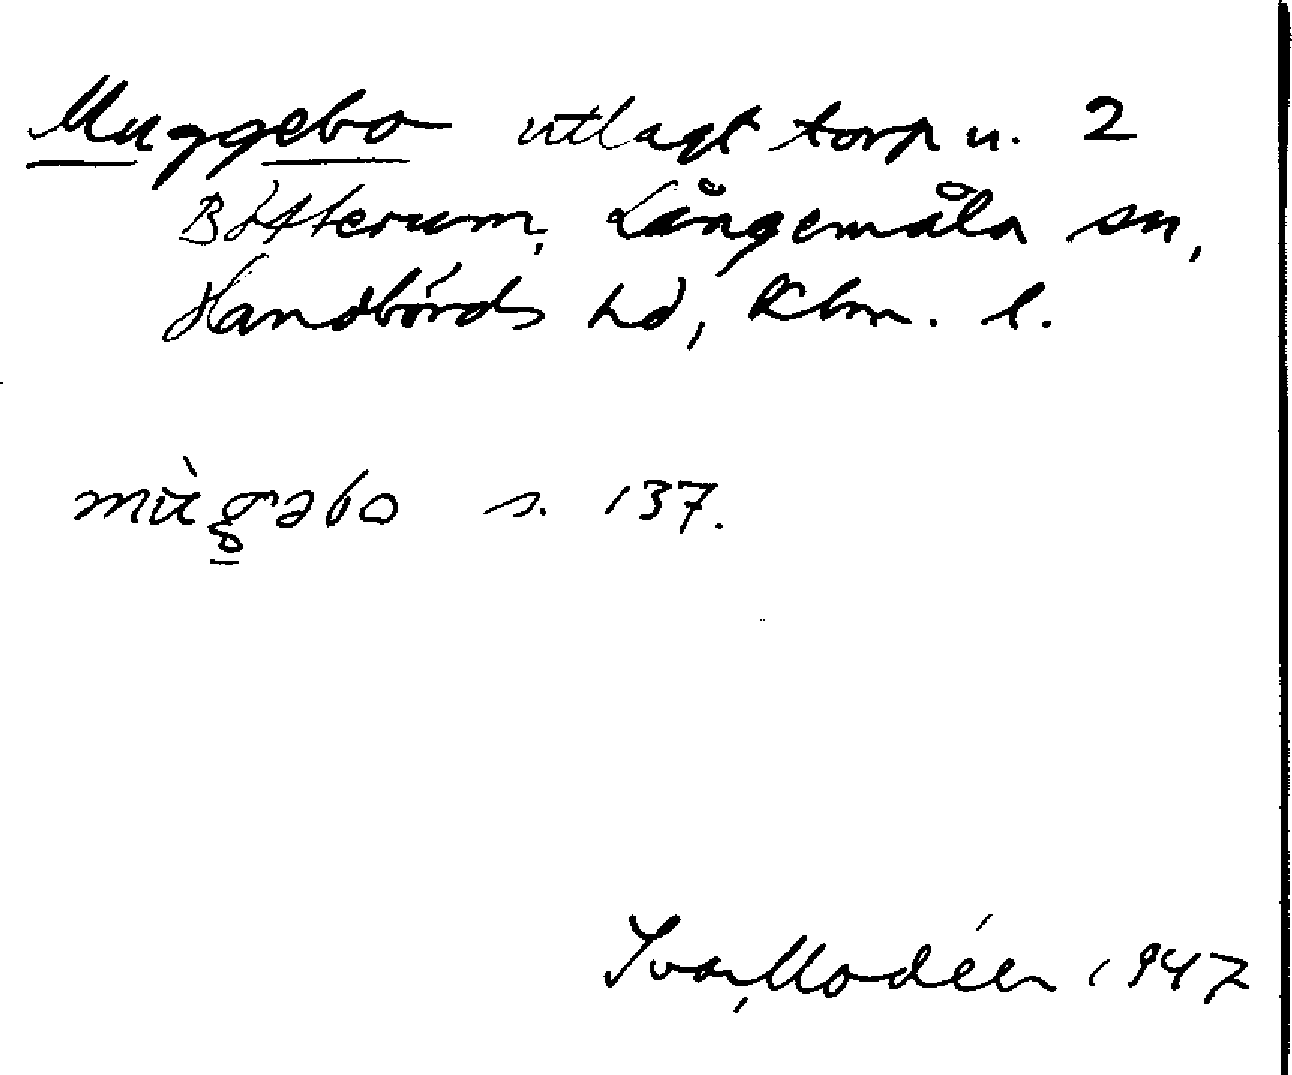 Muggebo utlagt torp u. 2
Bötterum, Långemåla sn,
Handbörds hd, Kbm. l.
mùg̳əbo s. 137.
Ivar Modéer 1947